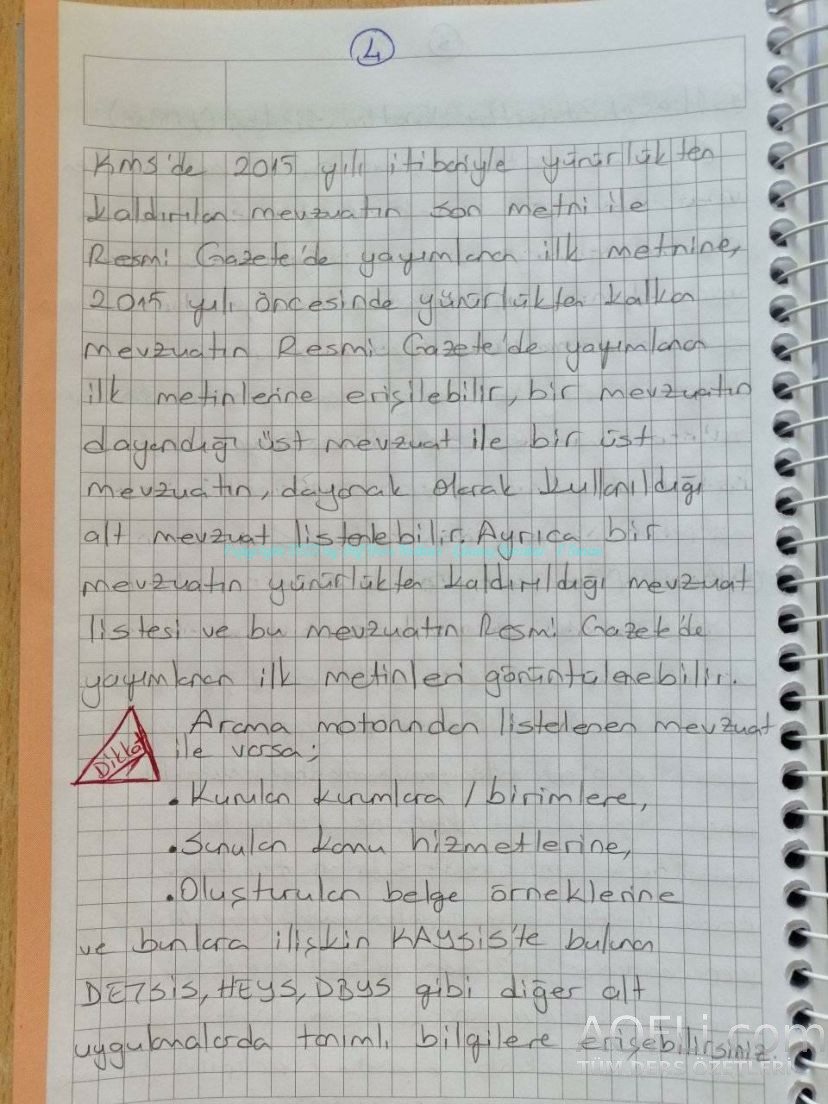 4
KMS'de 2015 yılı itibariyle yürürlükten
kaldırılan mevzuatın son metni ile
Resmi Gazete'de yayımlanan ilk metnine,
2015 yılı öncesinde yürürlükten kalkan
mevzuatın Resmi Gazete'de yayımlanan
ilk metinlerine erişilebilir, bir mevzuatın
dayandığı üst mevzuat ile bir üst
mevzuatın, dayanak olarak kullanıldığı
alt mevzuat listenebilir. Ayrıca bir
mevzuatın yürürlükten kaldırıldığı mevzuat
listesi ve bu mevzuatın Resmi Gazete'de
yayımlanan ilk metinleri görüntülenebilir.
Dikkat
Arama motorundan listelenen mevzuat
ile varsa;
• Kurulan kurumlara / birimlere,
• Sunulan kamu hizmetlerine,
• Oluşturulan belge örneklerine
ve bunlara ilişkin KAYSİS'te bulunan
DETSİS, HEYS, DBYS gibi diğer alt
uygulamalarda tanımlı bilgilere erişebilirsiniz.
AOFLi.com
TÜM DERS ÖZETLERİ